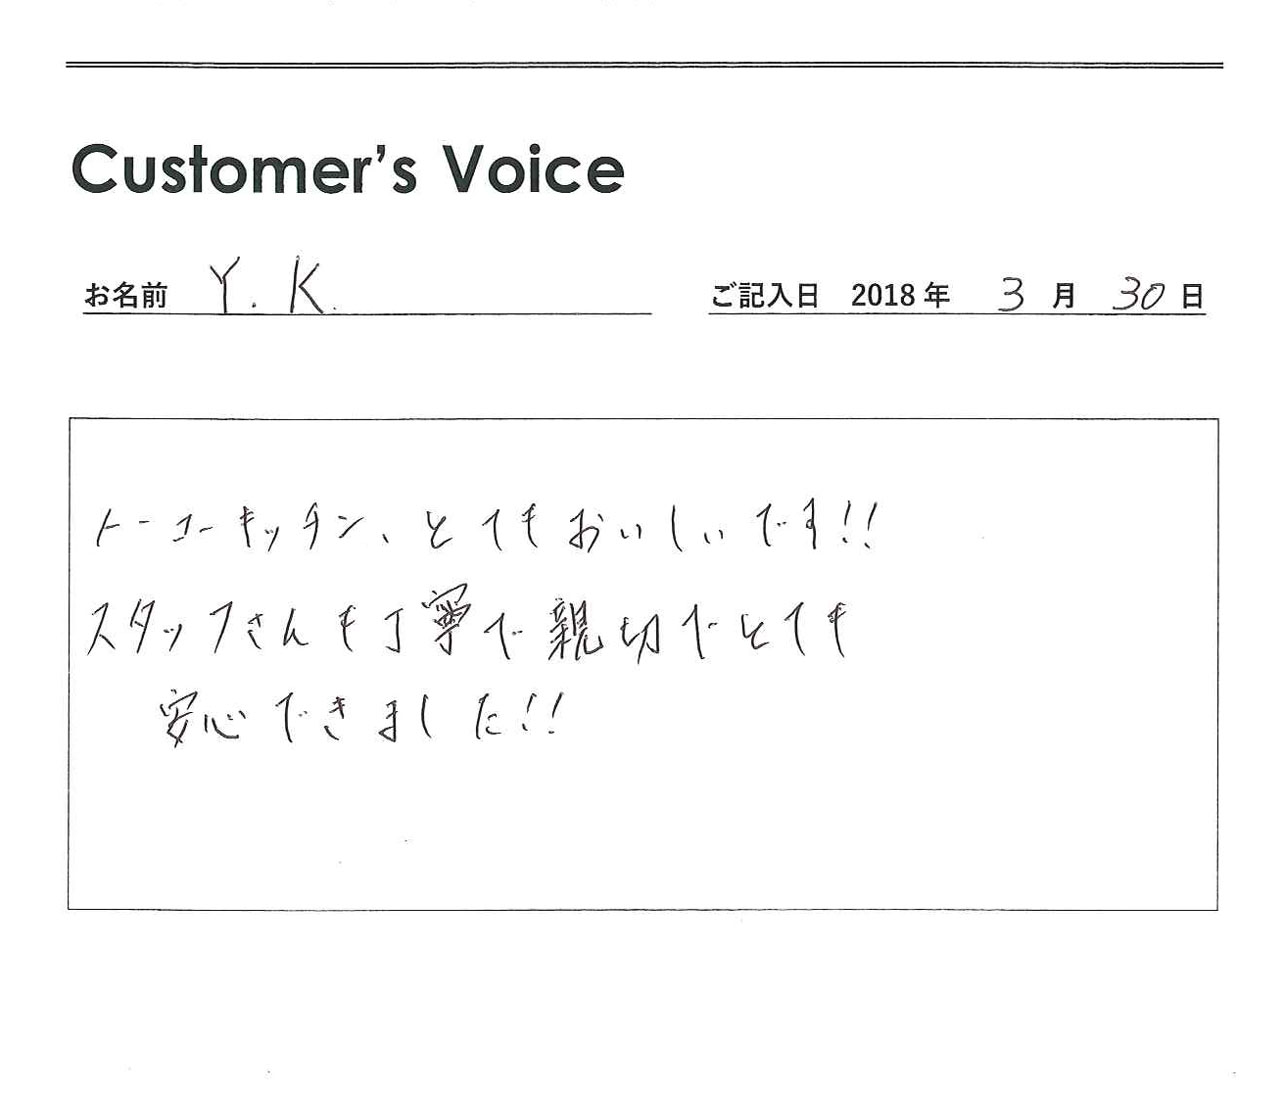 Customer's Voice
お名前 Y. K. ご記入日 2018 年 3 月 30 日
トーコーキッチン、とてもおいしいです!!
スタッフさんも丁寧で親切でとても
安心できました!!